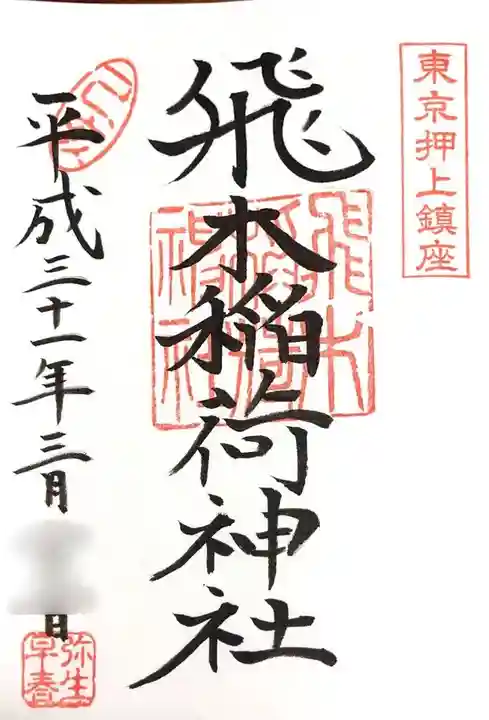 東京押上鎮座
飛木稲荷神社
平成三十一年三月
日
弥生
早春